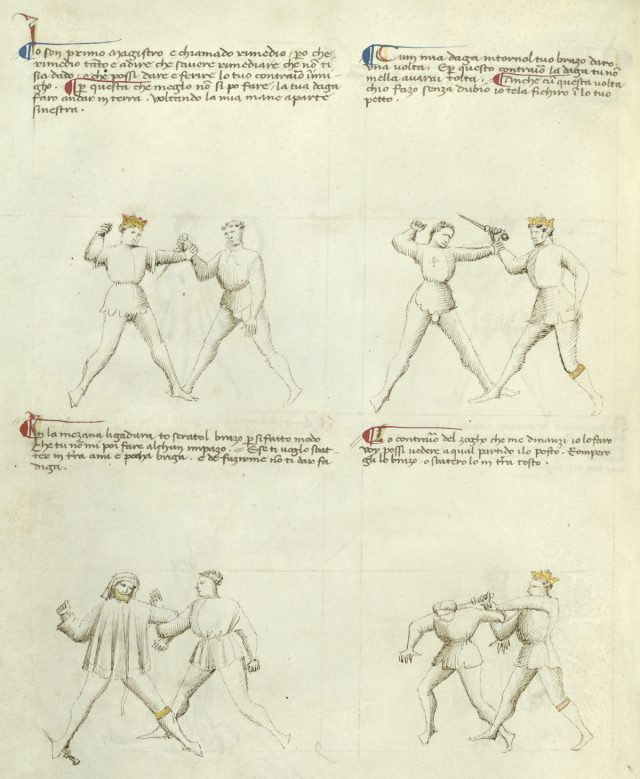 Io son primo magistro e chiamado rimedio, po che
rimedio tãto e adire che savere rimediare che nō ti
sia dado, e che possi dare e ferire lo tuo contrario inimi-
gho. P questa che meglo nō si po fare, la tua daga
faro andar in terra. Voltando la mia mane a parte
sinestra.
Cum mia daga intorno'l tuo brazo daro
una volta. E p questo contrario la daga tu nō
mella avarai tolta. Anche cū questa volta
ch'io fazo senza dubio io te la fichiro ī lo tuo
petto.
In la mezana ligadura to serato'l brazo p si fatto modo
che tu nō mi poii fare alchun impazo. E se ti voglo sbat-
ter in tr̃a a mi e pocha briga. E de fuzirme nō ti dar fa-
diga.
Lo contrario del zogho che me dinanzi io lo faro
voy possi vedere a qual partido i' lo posto. Rompero
gli lo brazo o sbatero lo in tr̃a tosto.